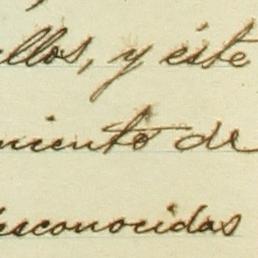 ellos, y éste
miento de
desconocidas